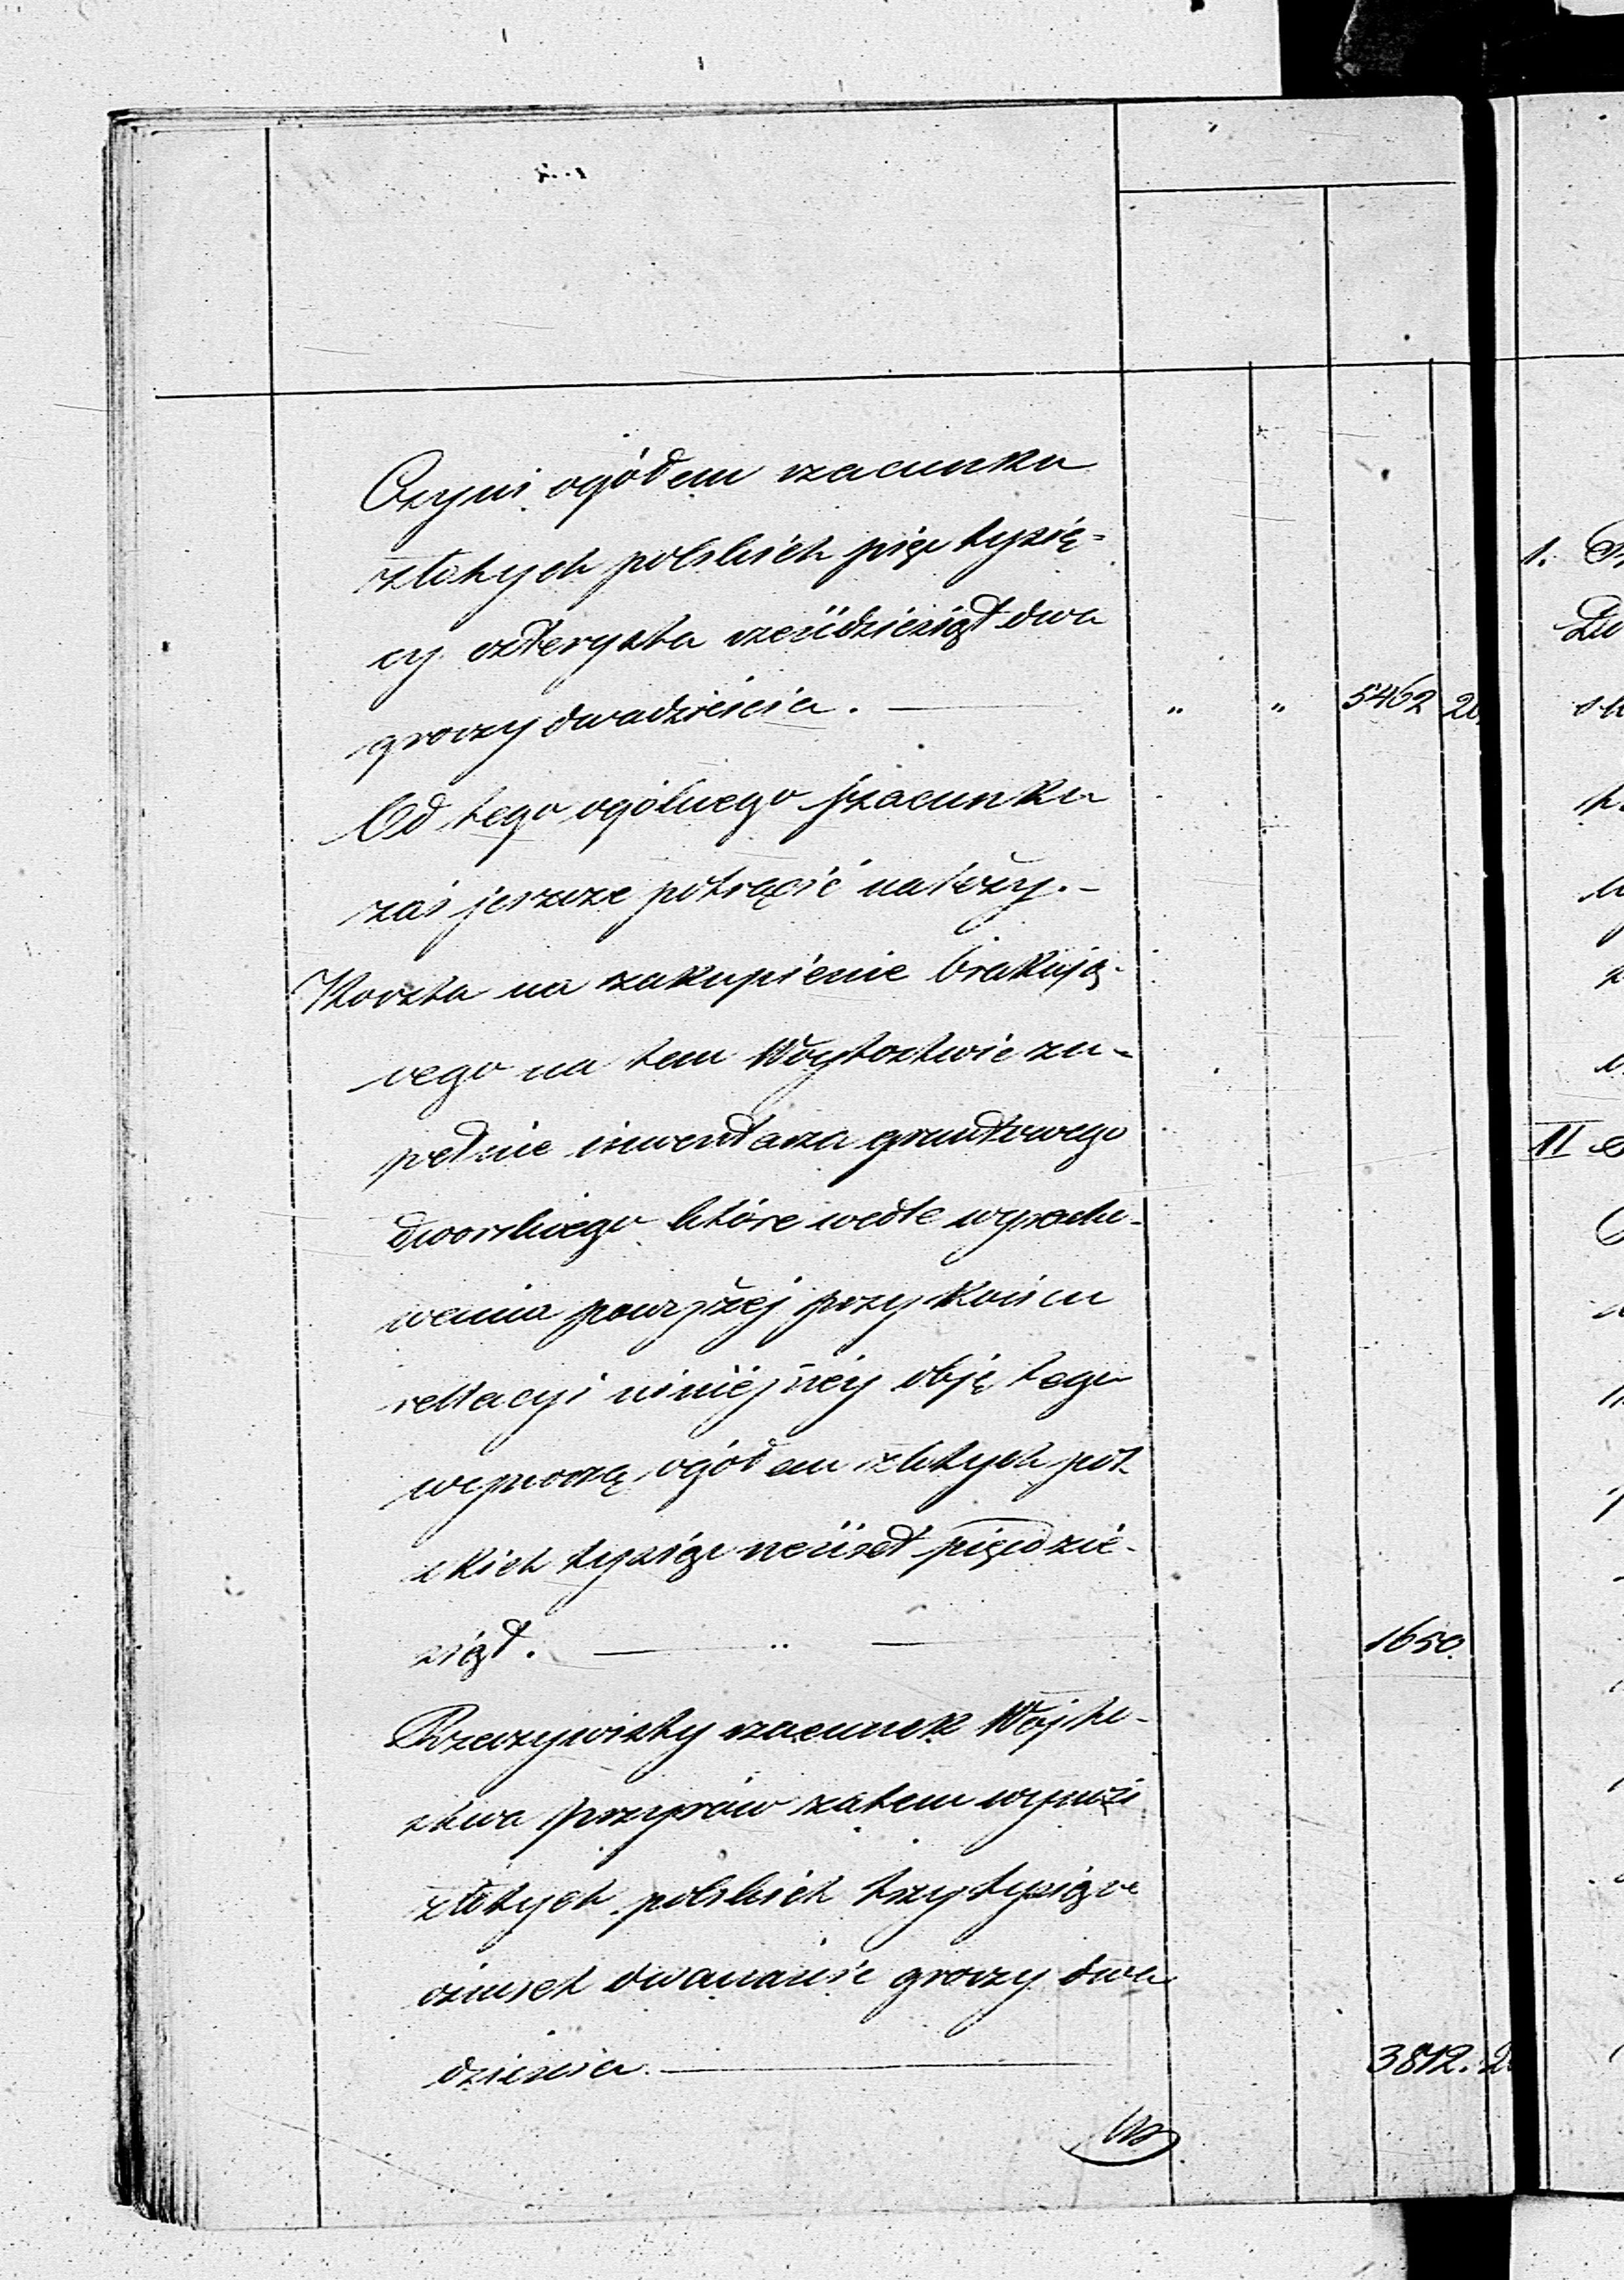 Czyni ogółem szacunku
złotych polskich pięć tysię=
cy czterysta sześćdziesiąt dwa
groszy dwadzieścia. — " " 5462 20
Od tego ogólnego szacunku
zaś jeszcze potrącić należy. –
Koszta na zakupienie brakują-
cego na tem Woytostwie zu-
pełnie inwentarza gruntowego
dworskiego które wedle wyracho-
wania powyżej przy końcu
rellacyi niniejszey objętego
wynoszą ogółem złotych pol-
skich tysiąc sześćset pięćdzie-
siąt. — " — 1650.
Rzeczywisty szacunek Wójto-
stwa Przyprów zatem wynosi
złotych polskich trzy tysiące
ośmset dwanaście groszy dwa
dzieścia. — 3812. 2
1.
II